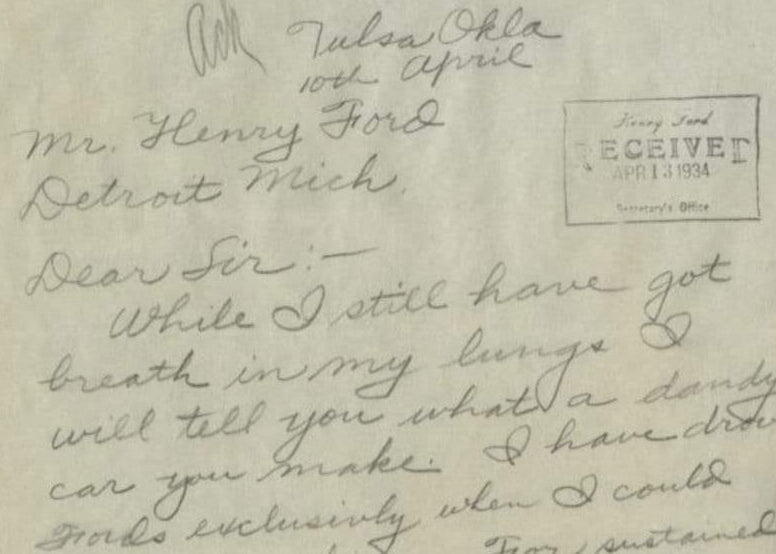 Ack
Tulsa Okla
10th April
Mr. Henry Ford
Detroit Mich.
Henry Ford
RECEIVED
APR 13 1934
Secretary's Office
Dear Sir:—
While I still have got
breath in my lungs I
will tell you what a dandy
car you make. I have drov
Fords exclusivly when I could
For sustained